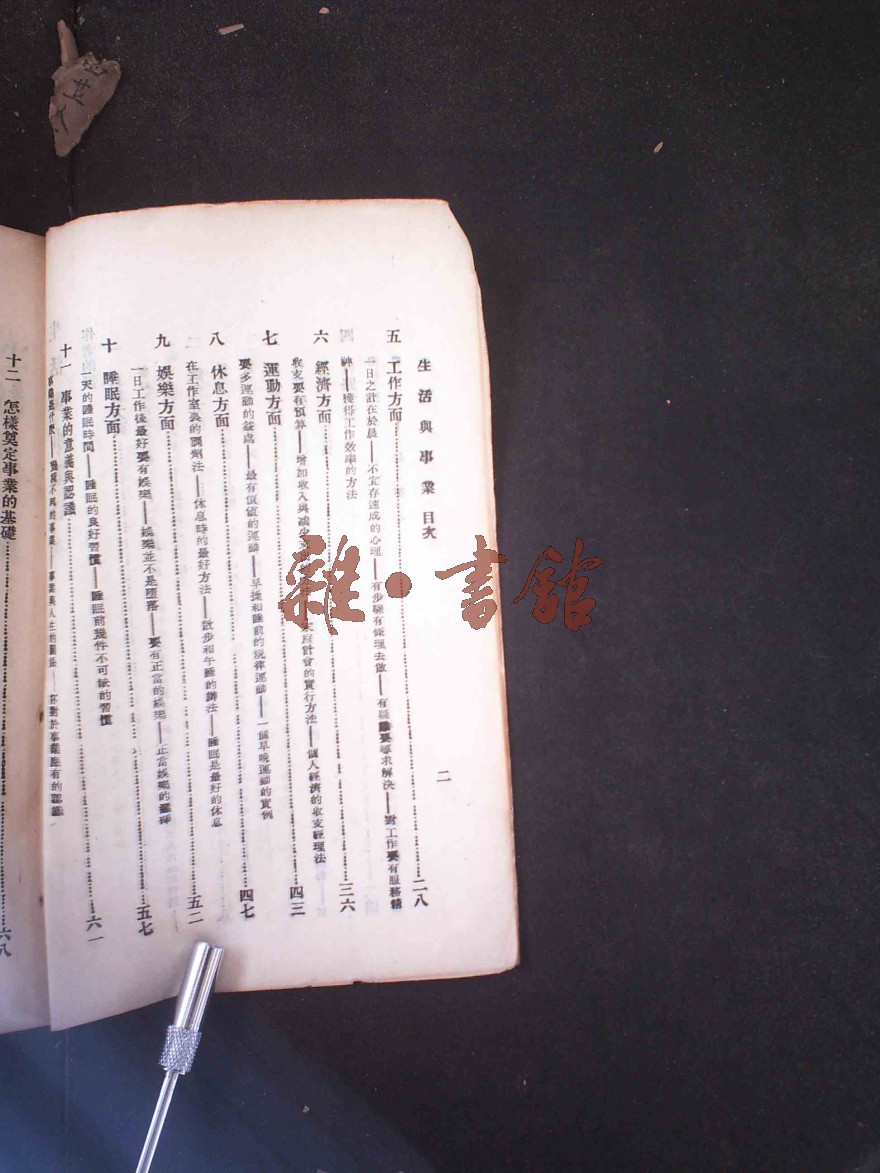 生活與事業 目次
二
五 工作方面……二八
一日之計在於晨——不宜存速成的心理——有步驟有條理去做——有疑難要尋求解決——對工作要有服務精
神——獲得工作效率的方法
六 經濟方面……三六
收支要有預算——增加收入與減少支 計會的實行方法——個人經濟的收支經理法
七 運動方面……四三
要多運動的益處——最有價值的運動——早操和睡前的規律運動——一個早晚運動的實例
八 休息方面……四七
在工作室裏的調劑法——休息時的最好方法——散步和午睡的辦法——睡眠是最好的休息
九 娛樂方面……五二
一日工作後最好要有娛樂——娛樂並不是墮落——要有正當的娛樂——正當娛樂的選擇
十 睡眠方面……五七
一天的睡眠時間——睡眠的良好習慣——睡眠前幾件不可缺的習慣
十一 事業的意義與認識……六一
事業是什麼—— 的事業——事業與人生的關係——你對於事業應有的認識
十二 怎樣奠定事業的基礎……六八
雜·書館